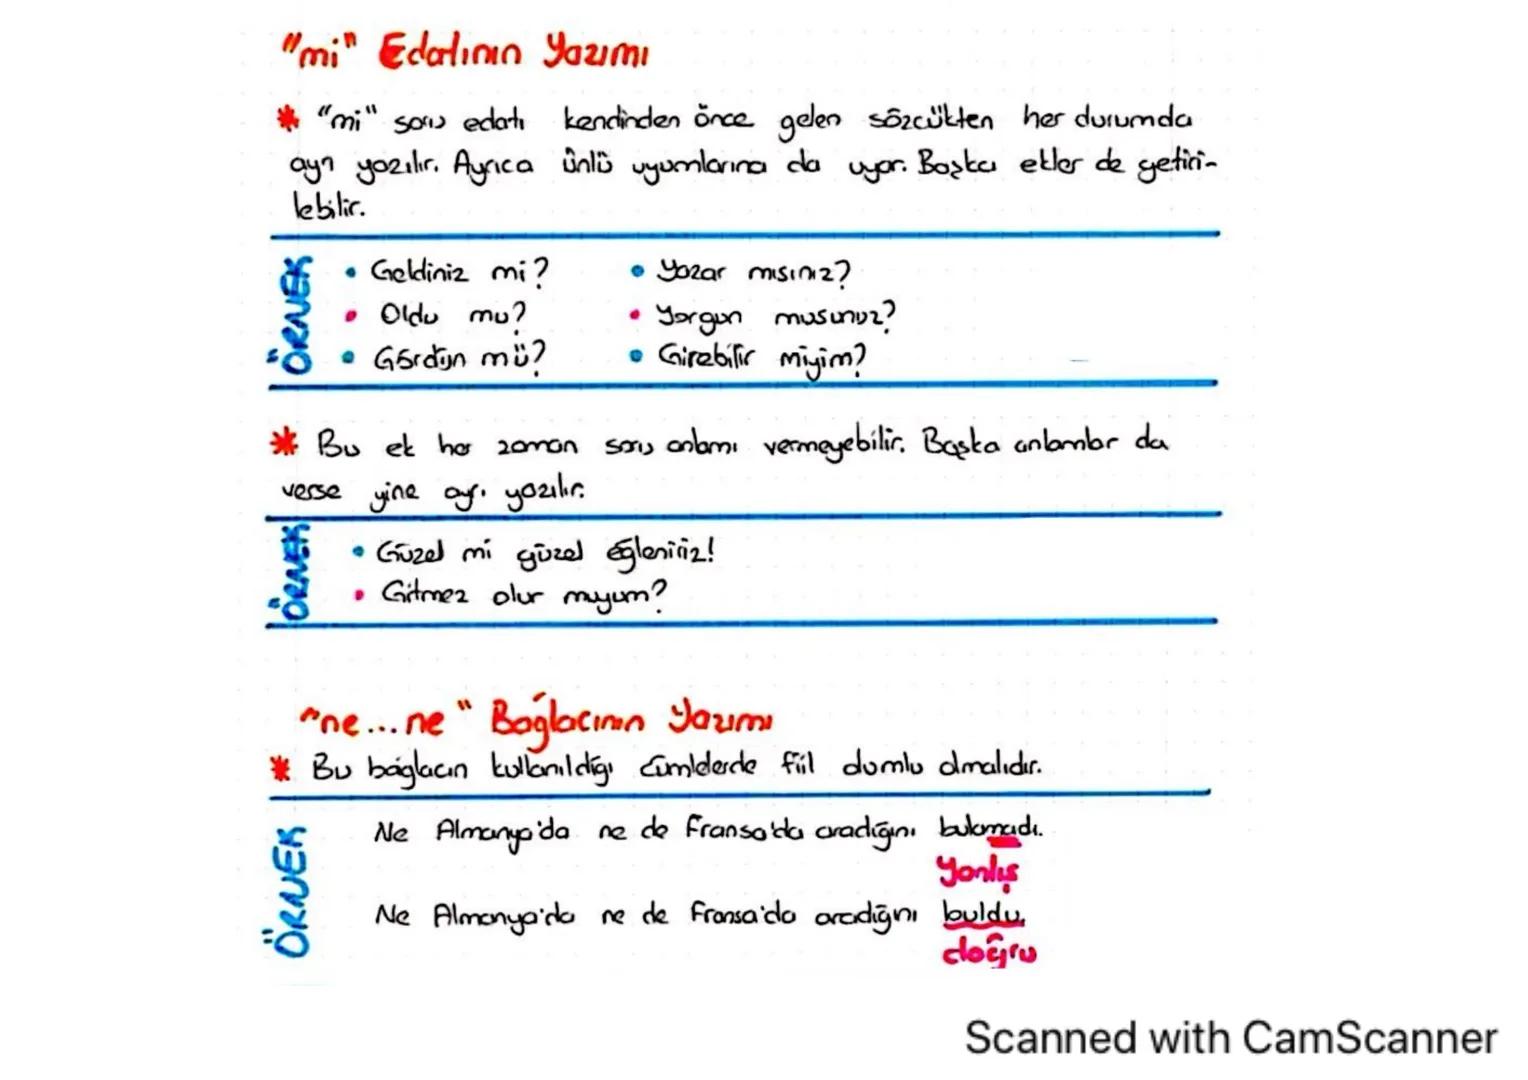 "mi" Edatının Yazımı
* "mi" soru edatı kendinden önce gelen sözcükten her durumda
ayrı yazılır. Ayrıca ünlü uyumlarına da uyar. Başka ekler de getiri-
lebilir.
ÖRNEK
• Geldiniz mi?
• Oldu mu?
• Gördün mü?
• Yazar mısınız?
• Yorgun musunuz?
• Girebilir miyim?
* Bu ek her zaman soru anlamı vermeyebilir. Başka anlamlar da
verse yine ayrı yazılır.
ÖRNEK
• Güzel mi güzel eğleniriz!
• Gitmez olur muyum?
"ne...ne" Bağlacının Yazımı
* Bu bağlacın kullanıldığı cümlelerde fiil olumlu olmalıdır.
ÖRNEK
Ne Almanya'da ne de Fransa'da aradığını bulamadı.
Yanlış
Ne Almanya'da ne de Fransa'da aradığını buldu.
doğru
Scanned with CamScanner